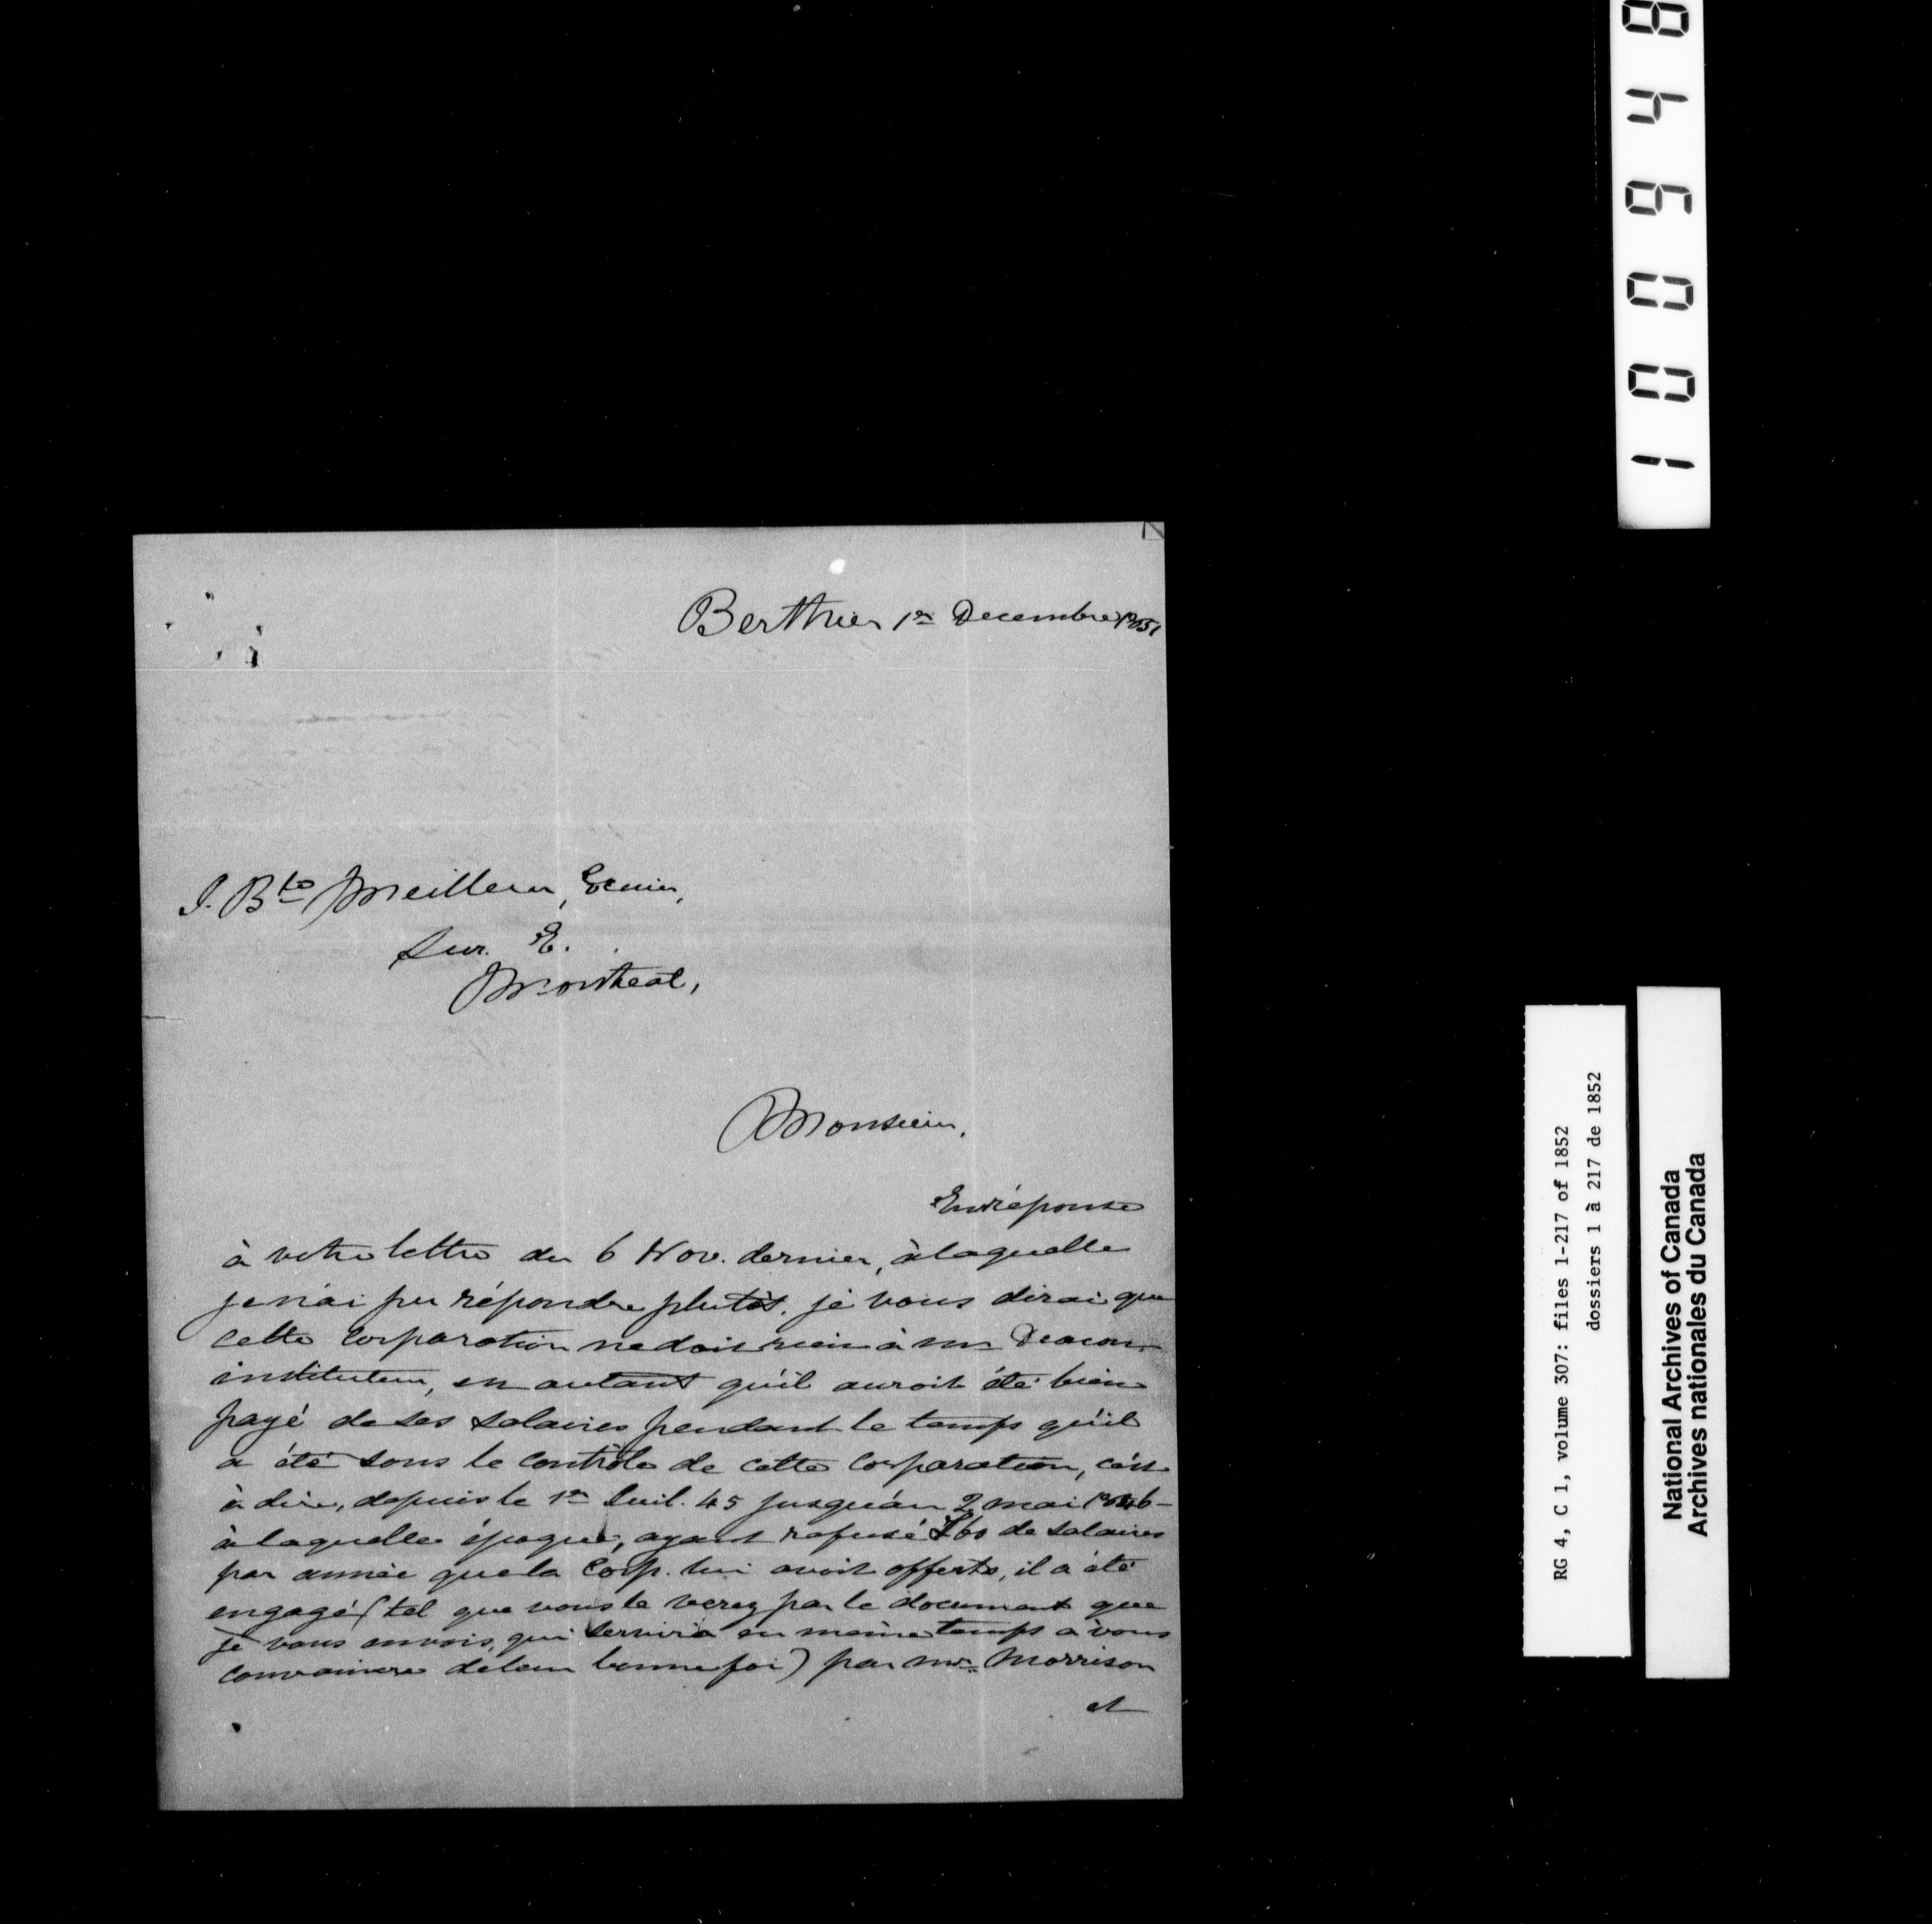 Berthier 1er Decembre 1851
J. Bte Meilleur, Ecuier,
Sur. E.
Montreal,
Monsieur,
En réponse
à votre lettre du 6 Nov. dernier, à laquelle
je n'ai pu répondre plutôt, je vous dirai que
cette corporation ne doit rien à mr Deacon
instituteur, en autant qu'il auroit été bien
payé de ses salaires pendant le temps qu'il
a été sous le contrôle de cette corporation, c'est
à dire, depuis le 1er Juil. 45 jusqu'au 2 mai 1846-
à laquelle époque, ayant refusé £60 de salaires
par année que la Corp. lui avoit offerts, il a été
engagé (tel que vous le verez par le document que
je vous envois, qui servira en même temps à vous
convaincre de leur bonne foi) par mr. Morrison
et
100948
RG 4, C 1, volume 307: files 1-217 of 1852
dossiers 1 à 217 de 1852
National Archives of Canada
Archives nationales du Canada